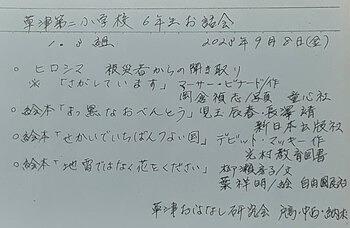 草津第二小学校 6年生お話会
1.3組 2023年9月8日(金)
○ ヒロシマ 被災者からの聞き取り
※「さがしています」アーサー・ビナード/作
岡倉禎志/写真 童心社
○絵本「まっ黒なおべんとう」児玉辰春・長澤靖
新日本出版社
○絵本「せかいでいちばんつよい国」デビット・マッキー作
光村教育図書
○絵本「地雷ではなく花をください」柳瀬房子/文
葉祥明/絵 自由国民社
草津おはなし研究会